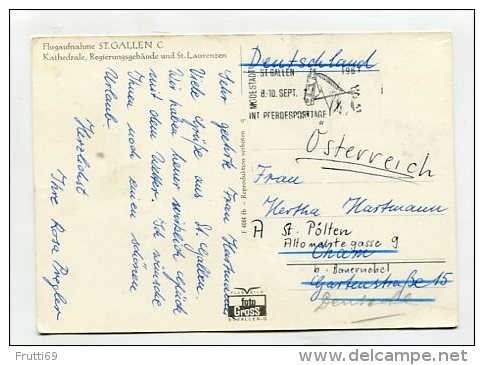 Flugaufnahme ST. GALLEN C
Kathedrale, Regierungsgebäude und St. Laurenzen
Sehr geehrte Frau Hartmann
Viele Grüße aus St. Gallen.
Wir haben heuer wirklich Glück
mit dem Wetter. Ich wünsche
Ihnen noch einen schönen
Urlaub.
Herzlichst
Ihre Rosa
F 4164 fb - Reproduktion verboten
Deutschland
MODESTADT
ST GALLEN
8.-10. SEPT.
INT PFERDESPORTTAGE
1967
Österreich
Frau
Hertha Hartmann
A St. Pölten
gasse 9
Cham
b. Bauernebel
Gartenstraße 15
foto
Gross
ST.GALLEN-O
Frutti69
http://www.delcampe.net